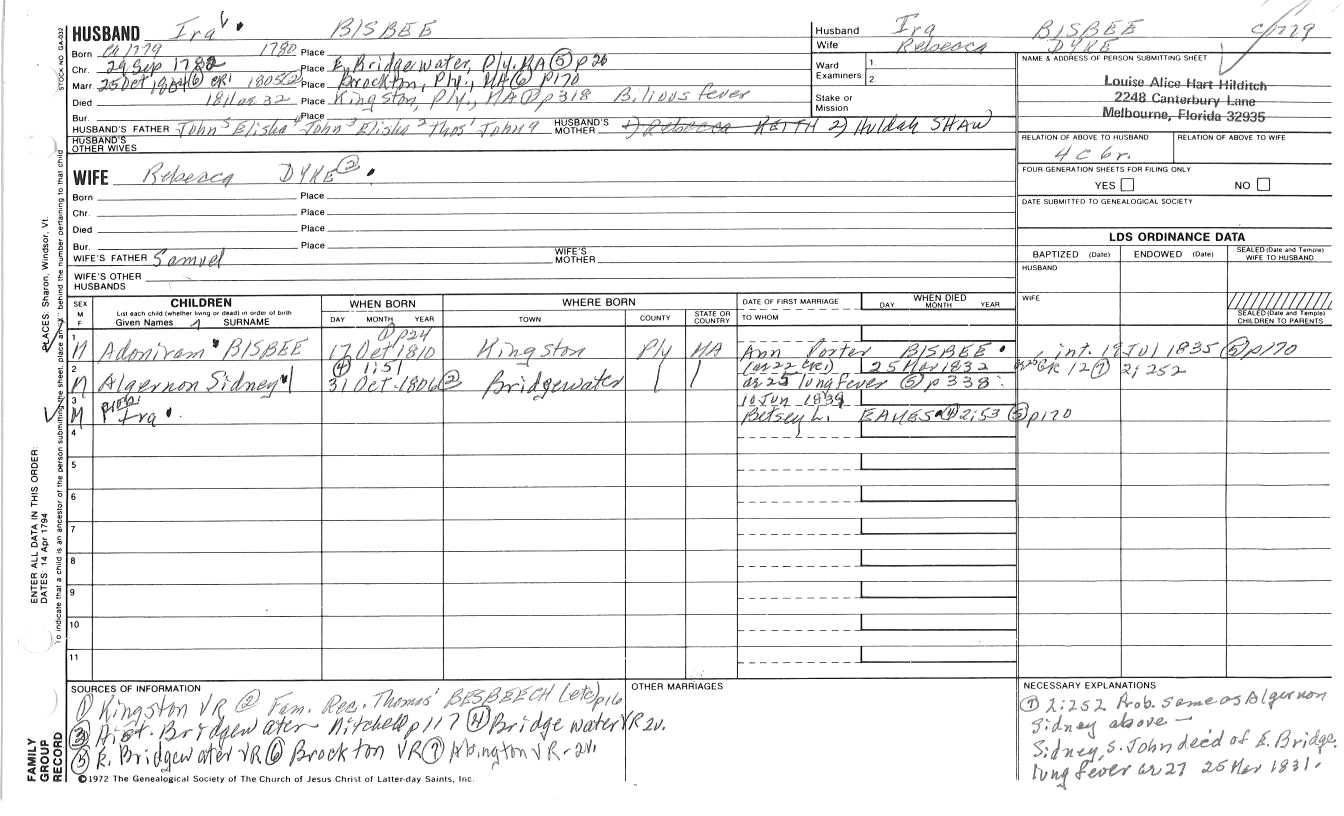 HUSBAND Ira BISBEE
Husband Ira BISBEE c/779
Wife Rebecca DYKE
Born ca 1779 1780 Place
Chr. 29 Sep 1782 Place E. Bridgewater, Ply. MA (5) p26
Marr 25 Oct 1804 (6) CR1 1805 (2) Place Brockton, Ply., MA (6) p170
Died 1811 ae 32 Place Kingston, Ply., MA (1) p318 Bilious fever
Bur. Place
Ward 1.
Examiners 2.
Stake or
Mission
NAME & ADDRESS OF PERSON SUBMITTING SHEET
Louise Alice Hart Hilditch
2248 Canterbury Lane
Melbourne, Florida 32935
HUSBAND'S FATHER John 5 Elisha 4 John 3 Elisha 2 Thos' John 9 HUSBAND'S MOTHER 1) Rebecca KEITH 2) Huldah SHAW
HUSBAND'S
OTHER WIVES
RELATION OF ABOVE TO HUSBAND RELATION OF ABOVE TO WIFE
4 c 6r.
WIFE Rebecca DYKE (2)
FOUR GENERATION SHEETS FOR FILING ONLY
YES NO
Born Place
Chr. Place
Died Place
Bur. Place
DATE SUBMITTED TO GENEALOGICAL SOCIETY
WIFE'S FATHER Samuel WIFE'S MOTHER
WIFE'S OTHER
HUSBANDS
LDS ORDINANCE DATA
BAPTIZED (Date) ENDOWED (Date) SEALED (Date and Temple) WIFE TO HUSBAND
HUSBAND
WIFE
SEALED (Date and Temple) CHILDREN TO PARENTS
SEX M F
CHILDREN
List each child (whether living or dead) in order of birth
Given Names SURNAME
WHEN BORN
DAY MONTH YEAR
WHERE BORN
TOWN COUNTY STATE OR COUNTRY
DATE OF FIRST MARRIAGE
TO WHOM
WHEN DIED
DAY MONTH YEAR
(1) p24
1 M Adoniram BISBEE 17 Oct 1810 Kingston Ply MA Ann Porter BISBEE int. 19 Jul 1835 (5) p170
(4) 1:51
(ae 22 CR1) 25 Mar 1832 ae 25 CR 12 (7) 2:252
2 M Algernon Sidney 31 Oct. 1806 (2) Bridgewater ae 25 lung fever (5) p338
prob.
10 Jun 1839
3 M Ira Betsey L. EAMES (4) 2:53 (5) p170
4
5
6
7
8
9
10
11
SOURCES OF INFORMATION
(1) Kingston VR (2) Fam. Rec. Thomas' BESBEECH (etc) p16
(3) Hist. Bridgewater Mitchell p117 (4) Bridgewater VR 2v.
(5) E. Bridgewater VR (6) Brockton VR (7) Abington VR - 2v.
OTHER MARRIAGES
NECESSARY EXPLANATIONS
(7) 2:252 Prob. same as Algernon
Sidney above -
Sidney, s. John decd of E. Bridge.
lung fever ae 27 25 Mar 1831.
©1972 The Genealogical Society of The Church of Jesus Christ of Latter-day Saints, Inc.
FAMILY
GROUP
RECORD
ENTER ALL DATA IN THIS ORDER:
DATES: 14 Apr 1794
PLACES: Sharon, Windsor, Vt.
To indicate that a child is an ancestor of the person submitting the sheet, place an behind the number pertaining to that child
STOCK NO. GA-032